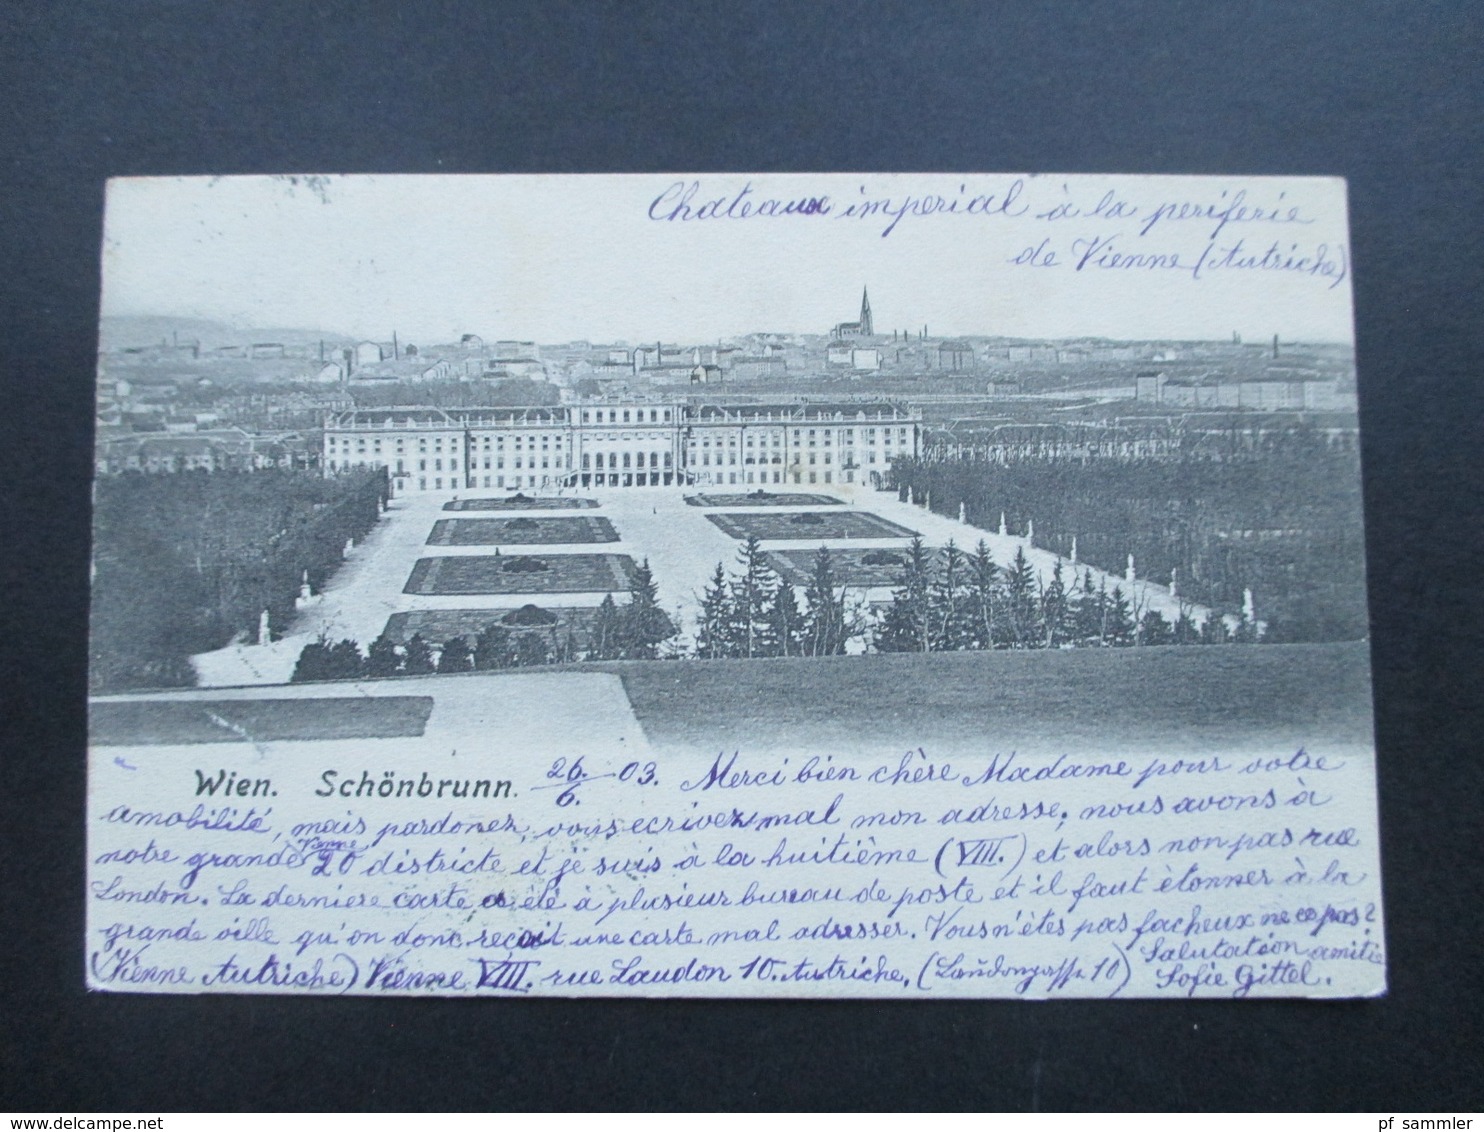 Chateaux imperial à la periferie
de Vienne (Autriche)
Wien. Schönbrunn. 26./6. 03. Merci bien chère Madame pour votre
amobilité, mais pardonez, vous ecrivez mal mon adresse, nous avons à
notre grande Vienne 20 districte et je suis à la huitième (VIII.) et alors non pas rue
London. La derniere carte a été à plusieur bureau de poste et il faut ètonner à la
grande ville qu'on donc reçoit une carte mal adresser. Vous n'étes pas facheux ne ce pas?
Salutation amitie
(Vienne Autriche) Vienne VIII. rue Laudon 10. Autriche. (Laudongasse 10) Sofie Gittel.
pf sammler